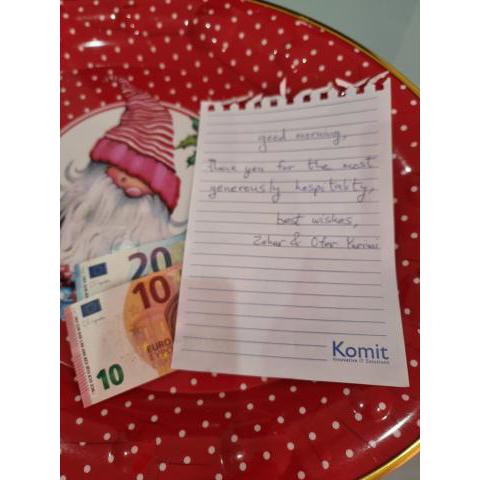 good morning,
Thank you for the most
generously hospitality,
best wishes,
Zohar & Ofer
Komit
Innovative IT Solutions
20
10
EURO
10